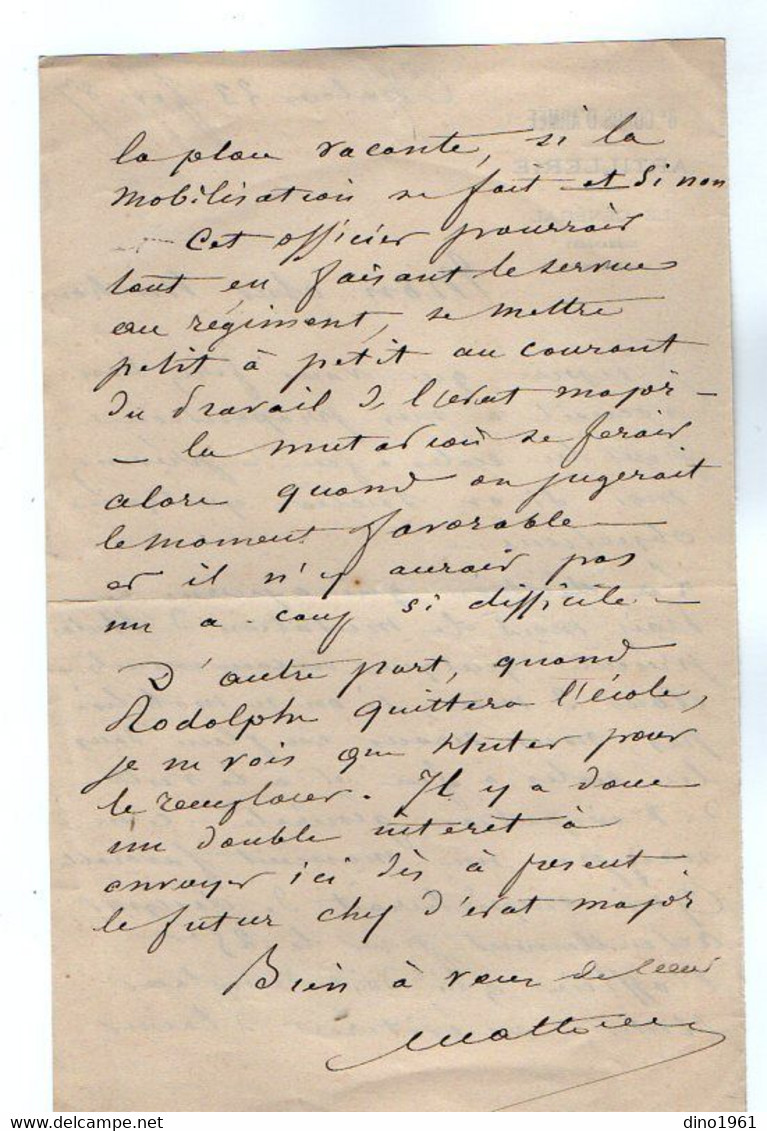 la place vacante, si la
mobilisation se fait et si non
— Cet officier pourrait
tout en faisant le service
au régiment, se mettre
petit à petit au courant
du travail de l'état major —
— la mutation se ferait
alors quand on jugerait
le moment favorable —
et il n'y aurait pas
un à-coup si difficile —
D'autre part, quand
Rodolphe quittera l'école,
je ne vois que Huter pour
le remplacer. Il y a donc
un double intérêt à
envoyer ici dès à présent
le futur chef d'état major
Bien à vous de coeur
dino1961